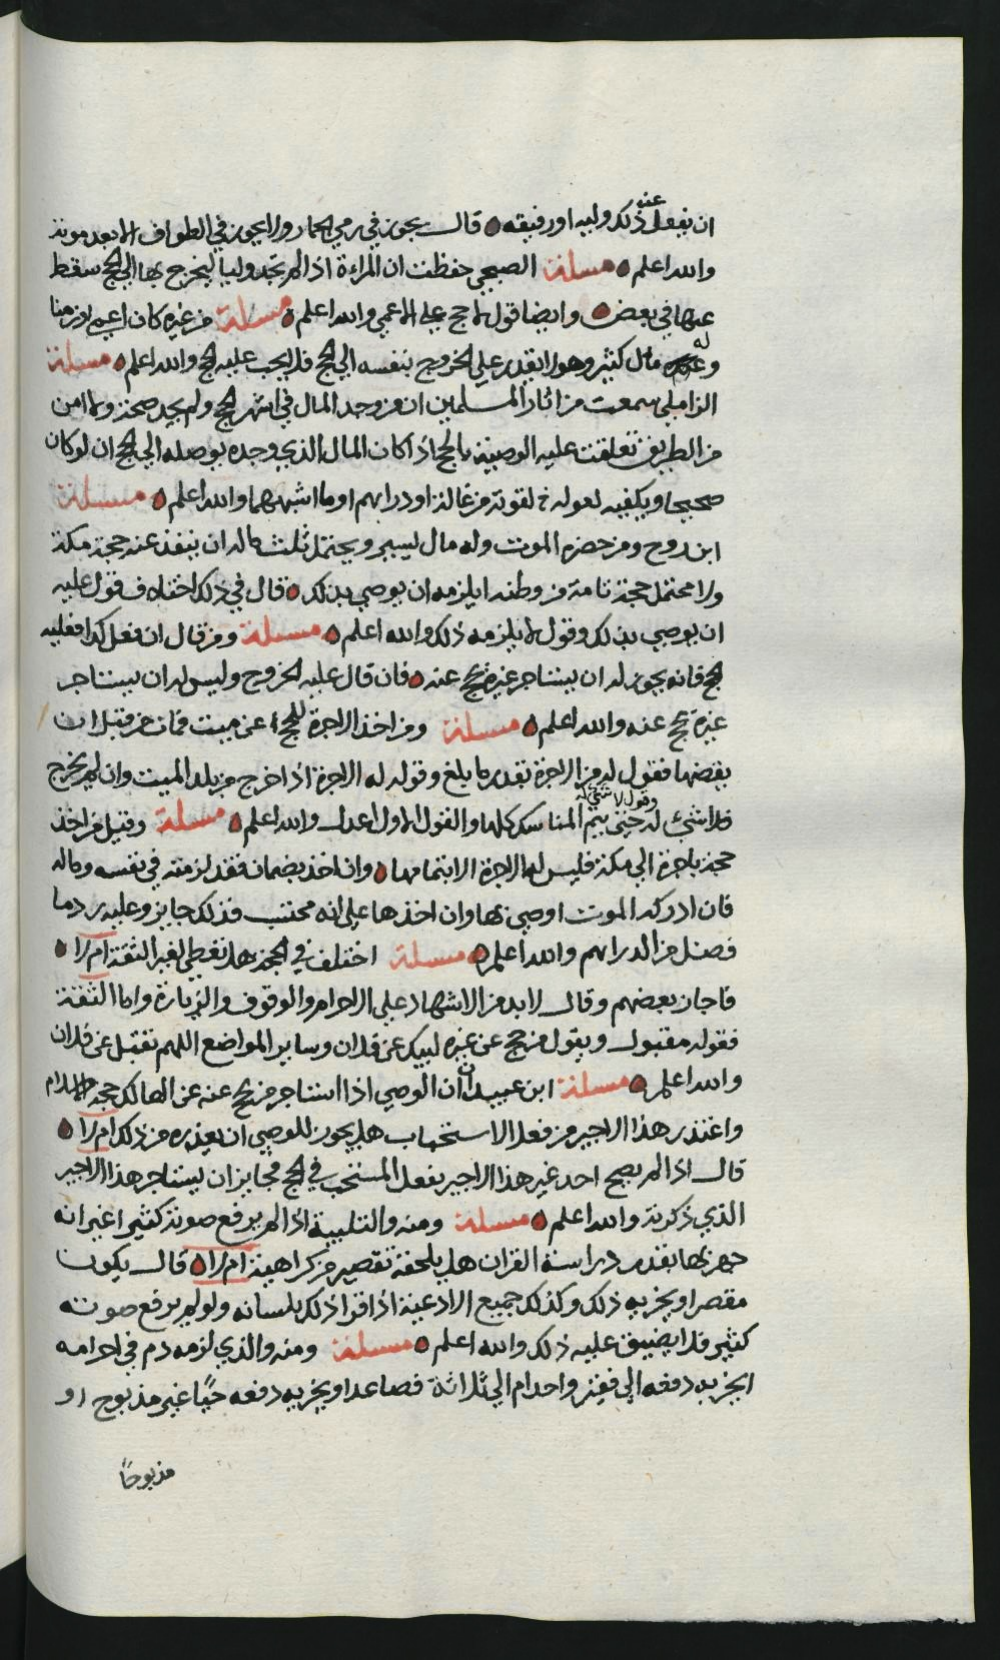 ان يفعل عنه ذلك وليه او رفيقه قال يجوز في رمي الجمار ولا يجوز في الطواف الا بعد موته
والله اعلم مسئلة الصبحي حفظت ان المراءة اذا لم تجد وليا ليخرج بها الي الحج سقط
عنها في بعض وايضا قول لا حج علي الاعمي والله اعلم مسئلة من غيره كان اعمي او زمنا
وله مال كثير وهو لا يقدر علي الخروج بنفسه الي الحج فلا يجب عليه الحج والله اعلم مسئلة
الزاملي سمعت من اثار المسلمين ان من وجد المال في اشهر الحج ولم يجد صحة ولا امن
من الطريق تعلقت عليه الوصية بالحج اذا كان المال الذي وجده يوصله الي الحج ان لو كان
صحيحا ويكفيه لعوله خ لقوته من غالة او دراهم او ما اشبههما والله اعلم مسئلة
ابن روح ومن حضره الموت وله مال يسير ويحتمل ثلث ماله ان ينفذ عنه حجة مكة
ولا محتمل حجة تامة من وطنه ايلزمه ان يوصي بذلك قال في ذلك اختلاف فقول عليه
ان يوصي بذلك وقول لا يلزمه ذلك والله اعلم مسئلة ومن قال ان فعل كذا فعليه
الحج فانه يجوز له ان يستاجر غيره يحج عنه فان قال عليه الخروج وليس له ان يستاجر
غيره يحج عنه والله اعلم مسئلة ومن اخذ الاجرة للحج عن ميت فمات من قبل ان
يقضها فقول له من الاجرة بقدر ما بلغ وقول له الاجرة اذا خرج من بلد الميت وان لم يخرج
فلا شئ له وقول لا شئ له حتى يتم المناسك كلها والقول الاول اعدل والله اعلم مسئلة وقيل من اخذ
حجة باجرة الي مكة فليس له الاجرة الا بتمامها وان اخذ بضمان فقد لزمته في نفسه وماله
فان ادركه الموت اوصي بها وان اخذها علي انه محتسب فذلك جايز وعليه رد ما
فضل من الدراهم والله اعلم مسئلة اختلف في الحجة هل تعطي لغير الثقة ام لا
فاجاز بعضهم وقال لا بد من الاشهاد علي الاحرام والوقوف والزيارة واما الثقة
فقوله مقبول ويقول من حج عن غيره لبيك عن فلان وساير المواضع اللهم تقبل عن فلان
والله اعلم مسئلة ابن عبيدان ان الوصي اذا استاجر من يحج عنه عن الهالك حجة
واعتذر هذا الاجير من فعل الاستحباب هل يجوز للوصي ان يعذره من ذلك ام لا
قال اذا لم يصح احد غير هذا الاجير يفعل المستحب في الحج فجايز ان يستاجر هذا الاجير
الذي ذكرته والله اعلم مسئلة ومنه والتلبية اذا لم يرفع صوته كثيرا غير انه
جهر بها بقدر دراسة القران هل يلحقه تقصير من كراهية ام لا قال يكون
مقصرا ويجزيه ذلك وكذلك جميع الادعية اذا قرا ذلك بلسانه ولو لم يرفع صوته
كثير فلا يضيق عليه ذلك والله اعلم مسئلة ومنه والذي لزمه دم في احرامه
ايجزيه دفعه الي فقير واحد ام الي ثلاثة فصاعدا ويجزيه دفعه حيًا غير مذبوح او
مذبوحًا